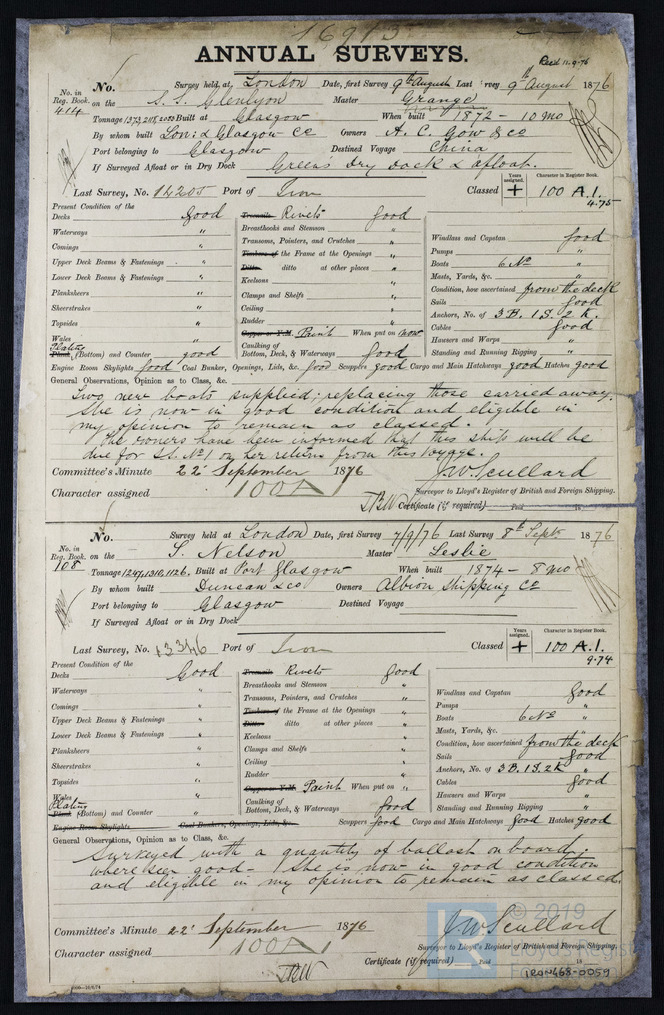 16913
ANNUAL SURVEYS.
Recd 11.9.76
No. in Reg. Book. 414
No. Survey held at London Date, first Survey 9th August Last Survey 9th August 1876
on the S.S. Glenlyon Master Grange
Tonnage 1373, 2118, 2003 Built at Glasgow When built 1872 - 10 mo
By whom built Lon: & Glasgow Co Owners A. C. Gow & Co
Port belonging to Glasgow Destined Voyage China
If Surveyed Afloat or in Dry Dock Green's Dry Dock & afloat.
Last Survey, No. 14205 Port of Iron Classed Years assigned. + Character in Register Book. 100 A.1. 4.75
Present Condition of the
Decks good
Waterways "
Comings "
Upper Deck Beams & Fastenings "
Lower Deck Beams & Fastenings "
Planksheers "
Sheerstrakes "
Topsides "
Wales "
Plating
Plank (Bottom) and Counter good
Treenails Rivets good
Breasthooks and Stemson "
Transoms, Pointers, and Crutches "
Timbers of the Frame at the Openings "
Ditto ditto at other places "
Keelsons "
Clamps and Shelfs "
Ceiling "
Rudder "
Copper or Y.M. Paint When put on now
Caulking of
Bottom, Deck, & Waterways good
Windlass and Capstan good
Pumps "
Boats 6 No "
Masts, Yards, &c. "
Condition, how ascertained from the deck
Sails good
Anchors, No. of 3 B. 1 S. 2 K.
Cables good
Hawsers and Warps "
Standing and Running Rigging "
Engine Room Skylights good Coal Bunker, Openings, Lids, &c. good Scuppers good Cargo and Main Hatchways good Hatches good
General Observations, Opinion as to Class, &c.
Two new boats supplied; replacing those carried away.
She is now in good condition and eligible in
my opinion to remain as classed.
The owners have been informed that this ship will be
due for S.S. No 1 on her return from this Voyage.
Committee's Minute 22 September 1876 J.W. Scullard
Character assigned 100A1 Surveyor to Lloyd's Register of British and Foreign Shipping.
Certificate (if required) Paid 18
No. in Reg. Book. 108
No. Survey held at London Date, first Survey 7/9/76 Last Survey 8th Sept 1876
on the S. Nelson Master Leslie
Tonnage 1247, 1310, 1126. Built at Port Glasgow When built 1874 - 8 mo
By whom built Duncan & Co Owners Albion Shipping Co
Port belonging to Glasgow Destined Voyage
If Surveyed Afloat or in Dry Dock
Last Survey, No. 13346 Port of Iron Classed Years assigned. + Character in Register Book. 100 A.1. 9.74
Present Condition of the
Decks Good
Waterways "
Comings "
Upper Deck Beams & Fastenings "
Lower Deck Beams & Fastenings "
Planksheers "
Sheerstrakes "
Topsides "
Wales "
Plating
Plank (Bottom) and Counter "
Treenails Rivets good
Breasthooks and Stemson "
Transoms, Pointers, and Crutches "
Timbers of the Frame at the Openings "
Ditto ditto at other places "
Keelsons "
Clamps and Shelfs "
Ceiling "
Rudder "
Copper or Y.M. Paint When put on "
Caulking of
Bottom, Deck, & Waterways good
Windlass and Capstan good
Pumps "
Boats 6 No "
Masts, Yards, &c. "
Condition, how ascertained from the deck
Sails good
Anchors, No. of 3 B. 1 S. 2 K
Cables good
Hawsers and Warps "
Standing and Running Rigging "
Engine Room Skylights Coal Bunkers, Openings, Lids, &c. Scuppers good Cargo and Main Hatchways good Hatches good
General Observations, Opinion as to Class, &c.
Surveyed with a quantity of ballast on board:
where seen good - She is now in good condition
and eligible in my opinion to remain as classed.
Committee's Minute 22 September 1876 J.W. Scullard
Character assigned 100A1 Surveyor to Lloyd's Register of British and Foreign Shipping.
Certificate (if required) Paid 18
© 2019
Lloyd's Regist
IRON468-0059